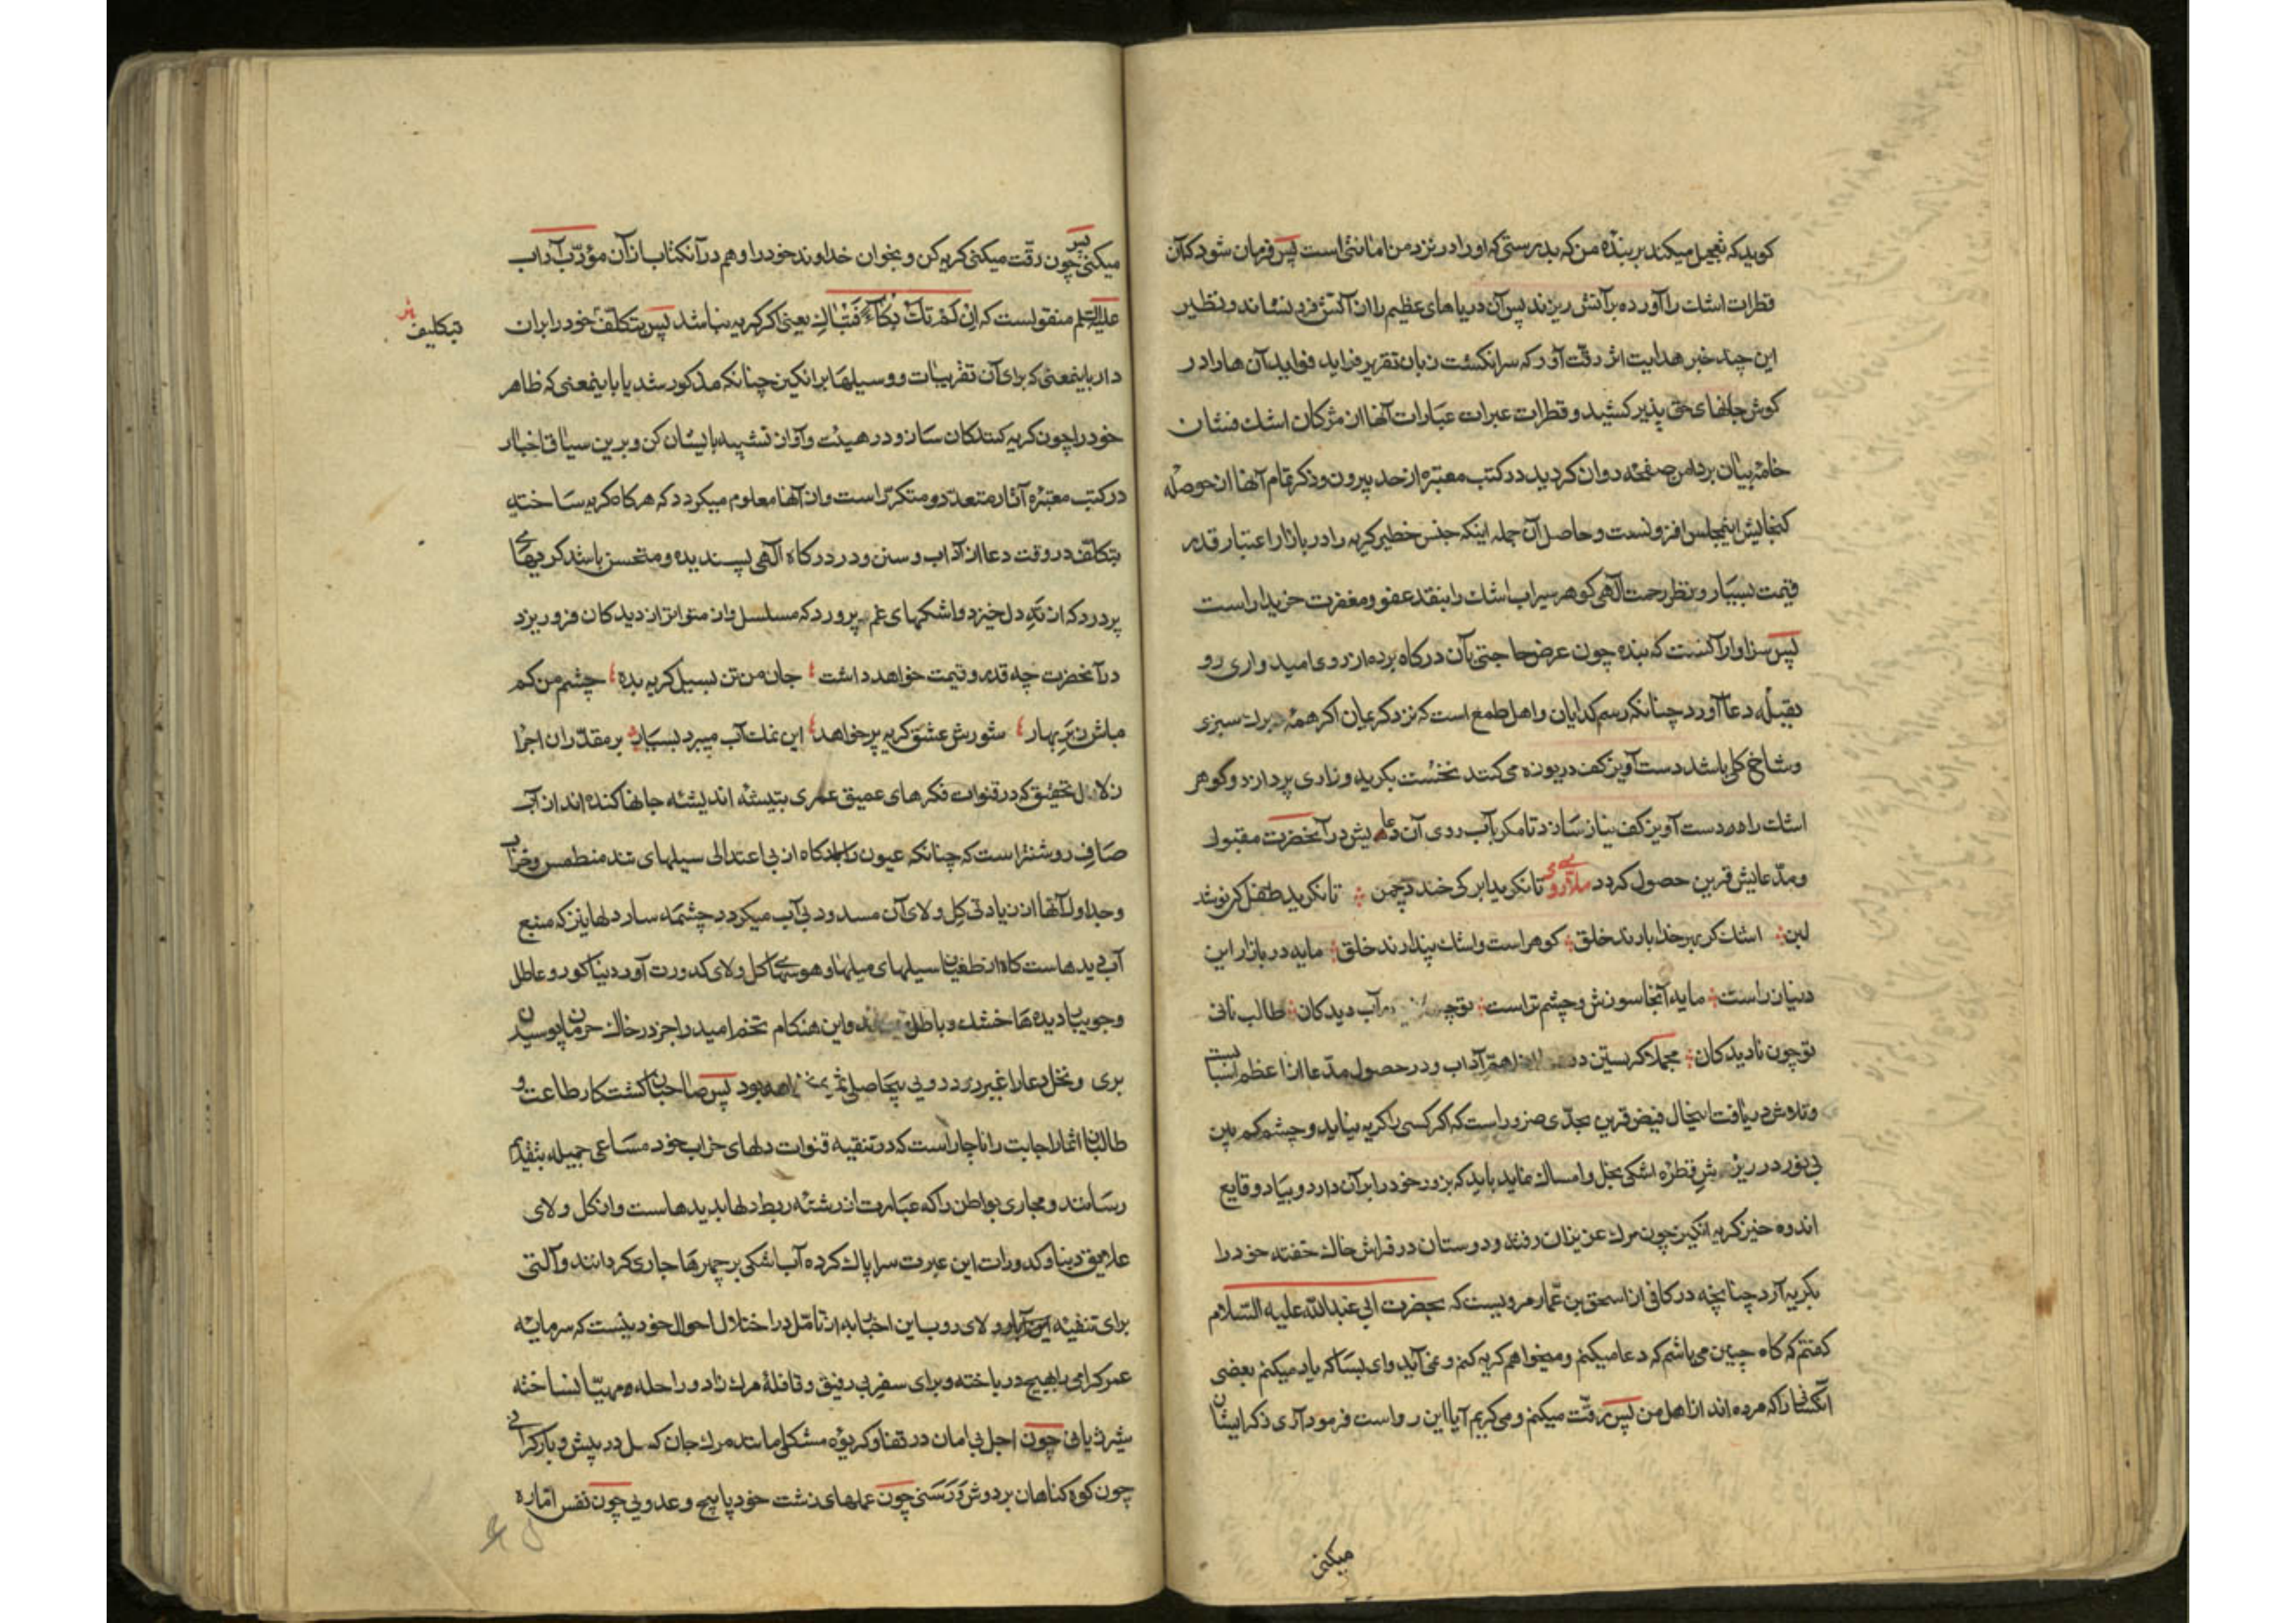 کوید که تعجیل میکند بر بنده من که بدرستی که او را در نزد من امانتی است پس فرمان شود که آن
قطرات اشك را آورده بر آتش ریزند پس آن دریاهای عظیم را از آتش فرو نشاند و نظیر
این چند خبر هدایت اثر رقّت آور که سرانکشت زبان تقریر فراید فواید آن ها را در
کوش جانهای حق پذیر کشید و قطرات عبرات عبارات آنها از مژکان اشك فشان
خامهٔ بیان بر دامن صفحه روان کردید در کتب معتبره از حد بیرون و ذکر تمام آنها از حوصلهٔ
کنجایش اینمجلس افزونست و حاصل آن جمله اینکه جنس خطیر کریه را در بازار اعتبار قدر
قیمت بسیار و نظر رحمت آلهی کوهر سیراب اشك را بنقد عفو و مغفرت خریدار است
پس سزاوار آنست که بنده چون عرض حاجتی بآن درکاه برده از روی امیدواری رو
بقبلهٔ دعا آورد چنانکه رسم کدایان و اهل طمع است که نزد کریمان اکر همه برك سبزی
و شاخ کلی باشد دست آویز کف دریوزه می کنند نخست بکریه و زاری پردازد و کوهر
اشك را دست آویز کف نیاز سازد تا مکر بآب روی آن دعایش در آنحضرت مقبول
و مدّعایش قرین حصول کردد ملای رومی تا نکرید ابر کی خندد چمن تا نکرید طفل کی نوشد
لبن اشك کز بهر خدا بارند خلق کوهر است و اشك پندارند خلق مایه در بازار این
دنیا زر است مایه آنجا سوزش و چشم تر است توچه آب دیدکان طالب نانی
تو چون نادیدکان مجملا کریستن در اهمّ آداب و در حصول مدّعا از اعظم اسبابست
و تلاش دریافت اینحال فیض قرین بحدّی ضرور است که اکر کسی را کریه نیاید و چشم کم بین
بی نور در ریزش قطرهٔ اشکی بخل و امساك نماید باید که بزور خود را بر آن دارد و بیاد وقایع
اندوه خیز کریه انکیز چون مرك عزیزان رفته و دوستان در فراش خاك خفته خود را
بکریه آرد چنانچه در کافی از اسحق بن عمّار مرویست که بحضرت ابی عبدالله علیه السّلام
کفتم که کاه چنین می باشم که دعا میکنم و میخواهم کریه کنم و نمی آید و ای بسا که یاد میکنم بعضی
آنکسانرا که مرده اند از اهل من پس رقّت میکنم و می کریم آیا این رواست فرمود آری ذکر ایشان
میکنی
میکنی پس چون رقّت میکنی کریه کن و بخوان خداوند خود را و هم در آنکتاب از آن مؤدّب آداب
علیه السّلم منقولست که اِنْ لَمْ تَكُ بُكَاءٌ فَتَبَاكِ یعنی اکر کریه نباشد پس بتکلّف خود را بر آن
بتکلیف
دار باینمعنی که برای آن تقریبات و وسیلها برانکیز چنانکه مذکور شد یا باینمعنی که ظاهر
خود را چون کریه کنندکان ساز و در هیئت و آواز تشبیه بایشان کن و برین سیاق اخبار
در کتب معتبره آثار متعدّد و متکرّر است و از آنها معلوم میکردد که هرکاه کریه ساخته
بتکلّف در وقت دعا از آداب و سنن و در درکاه آلهی پسندیده و مستحسن باشد کریهای
پر درد که از ته دل خیزد و اشکهای غم پرورد که مسلسل و از متواتر از دیدکان فرو ریزد
در آنحضرت چه قدر و قیمت خواهد داشت جان من تن بسیل کریه بده چشم من کم
مباش ز ابر بهار شورش عشق کریه پر خواهد این نمك آب میبرد بسیار بر مقدّران اجرا
زلال تحقیق که در قنوات فکرهای عمیق عمری بتیشهٔ اندیشه جانها کنده اند از آب
صاف روشنتر است که چنانکه عیون را کاه از بی اعتدالی سیلهای تند منطمس و خراب
و جداول آنها از زیادتی کل و لای آن مسدود بی آب میکردد چشمه سار دلها نیز که منبع
آب دیدهاست کاه از طغیان سیلهای میلها و هوسها کل ولای کدورت آورد دنیا کور و عاطل
و جویبار دیده ها خشك و باطل و این هنکام تخم امید را جز در خاك حرمان پوسیدن
بری و نخل دعا را غیر درد دوبی بیحاصلی ثمری نخواهد بود پس صاحبان کشتکار طاعت و
طالبان اثمار اجابت را ناچار است که در تنقیه قنوات دلهای خراب خود مساعی جمیله بتقدیم
رسانند و مجاری بواطن را که عبارت از رشتهٔ ربط دلها بدیدهاست و از کل و لای
علایق دنیا و کدورات این عبرت سرا پاك کرده آب اشکی بر چهرها جاری کردانند و آلتی
برای تنقیه این آبار و لای روب این اخبار به از تأمّل در اختلال احوال خود نیست که سرمایهٔ
عمر کرامی بهیچ در باخته و برای سفر بی رفیق و قافلهٔ مرك زاد و راحله مهیّا نساخته
شرزیانی چون اجل بی امان در قفا و کریوه مشکلی مانند مرك جان کسل در پیش و بار کرانی
چون کوه کناهان بر دوش و رَسَنی چون عملهای زشت خود پاپیچ و عدوبی چون نفس امّاره